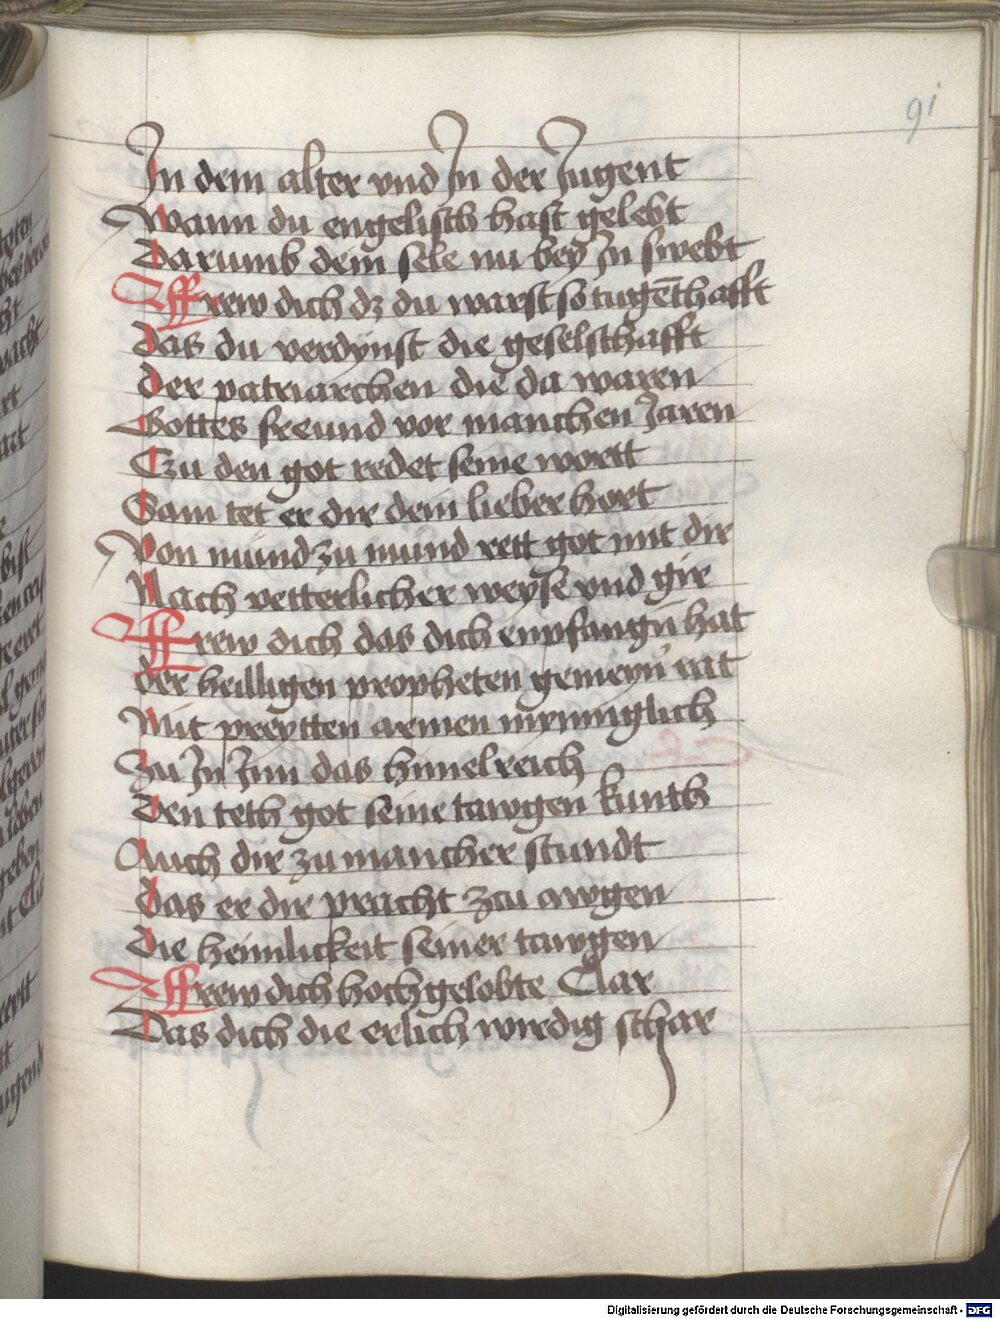 91
In dem alter vnd In der Jugent
Wann du engelisch hast gelebt
Darumb dein sele nu bey In swebt
Ffrew dich dz du warst so tugēthafft
Das du verdynst die geselschafft
Der patriarchen die da waren
Gottes freund vor manchen Jaren
Czu den got redet seine wortt
Sam tet er dir dein lieber hort
Von mund zu mund rett got mit dir
Nach vetterlicher weyse vnd gir
Ffrew dich das dich enpfangn hat
Der heilligen propheten gemeyn rat
Mit preytten armen mynniglich
Zu In Inn das himelreich
Den teth got seine tawgen kunth
Auch dir zu mancher stundt
Das er dir pracht zcu awgen
Die heimlickeit seiner tawgen
Ffrew dich hochgelobte Clar
Das dich die erlich wirdig schar
Digitalisierung gefördert durch die Deutsche Forschungsgemeinschaft - DFG